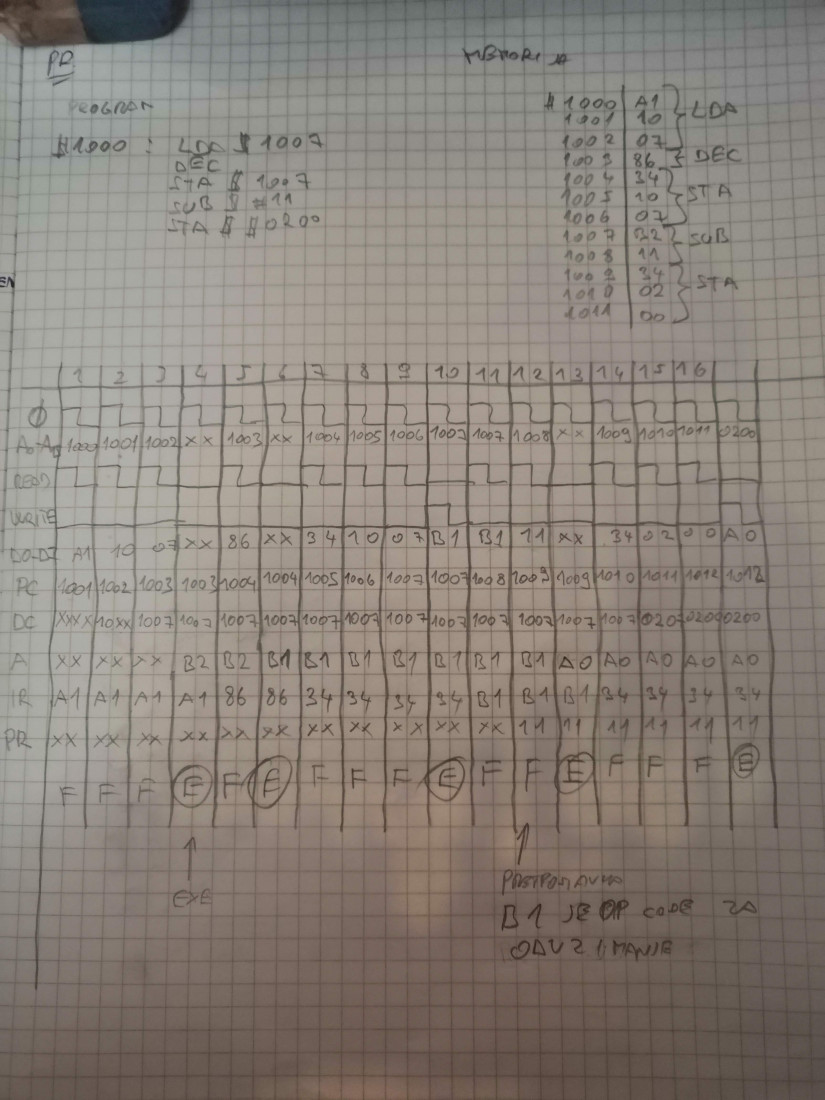 PR
MEMORIJA
PROGRAM
$1000 : LDA $ 1007
DEC
STA $ 1007
SUB $ #11
STA $ $0200
$1000 A1 LDA
1001 10
1002 07
1003 86 DEC
1004 34 STA
1005 10
1006 07
1007 B2 SUB
1008 11
1009 34 STA
1010 02
1011 00
EN
1 2 3 4 5 6 7 8 9 10 11 12 13 14 15 16
Φ
1000 1001 1002 xx 1003 xx 1004 1005 1006 1007 1007 1008 xx 1009 1010 1011 0200
READ
WRITE
D0-D7 A1 10 07 xx 86 xx 34 10 07 B1 B1 11 xx 34 02 00 A0
PC 1001 1002 1003 1003 1004 1004 1005 1006 1007 1007 1008 1009 1009 1010 1011 1012 1012
DC xxxx 10xx 1007 1007 1007 1007 1007 1007 1007 1007 1007 1007 1007 1007 0207 0200 0200
A xx xx xx B2 B2 B1 B1 B1 B1 B1 B1 B1 A0 A0 A0 A0 A0
IR A1 A1 A1 A1 86 86 34 34 34 34 B1 B1 B1 34 34 34 34
PR xx xx xx xx xx xx xx xx xx xx xx 11 11 11 11 11 11
F F F E F E F F F E F F E F F F E
EXE
PRETPOSTAVKA
B1 JE OP CODE ZA
ODUZIMANJE